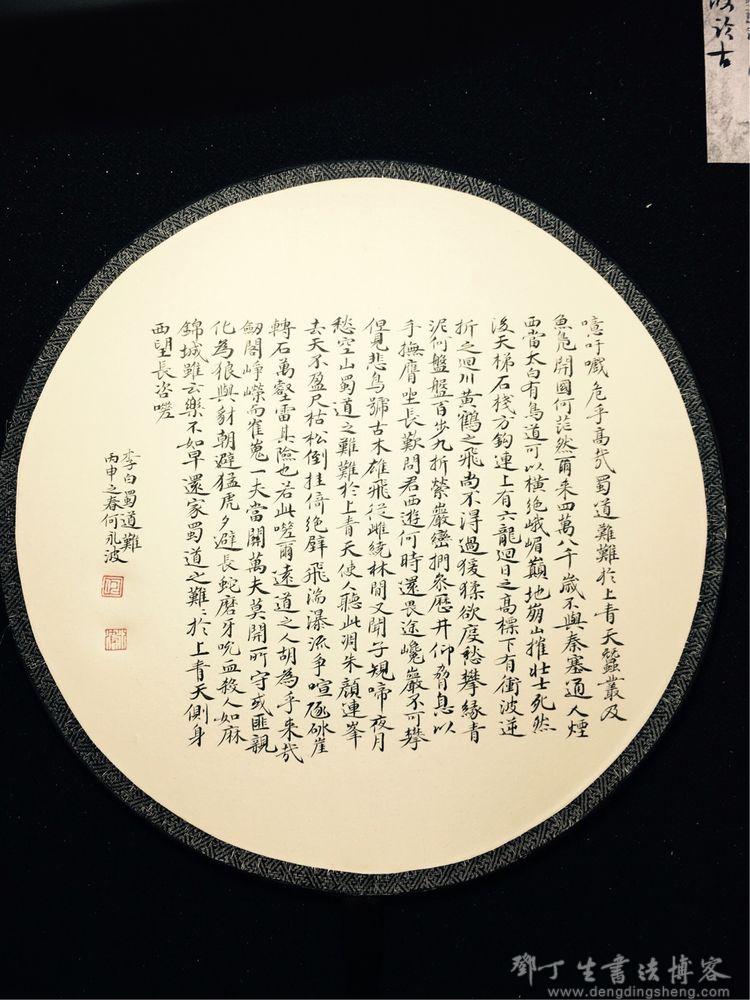 噫吁嚱危乎高哉蜀道難難於上青天蠶叢及
魚鳧開國何茫然爾来四萬八千歲不與秦塞通人煙
西當太白有鳥道可以橫絶峨嵋巔地崩山摧壯士死然
後天梯石棧方鈎連上有六龍迴日之高標下有衝波逆
折之迴川黃鶴之飛尚不得過猨猱欲度愁攀緣青
泥何盤盤百步九折縈巖巒捫參歷井仰脅息以
手撫膺坐長歎問君西遊何時還畏途巉巖不可攀
但見悲鳥號古木雄飛從雌繞林間又聞子規啼夜月
愁空山蜀道之難難於上青天使人聽此凋朱顏連峯
去天不盈尺枯松倒挂倚絶壁飛湍瀑流爭喧豗砯崖
轉石萬壑雷其險也若此嗟爾遠道之人胡為乎来哉
劒閣崢嶸而崔嵬一夫當關萬夫莫開所守或匪親
化為狼與豺朝避猛虎夕避長蛇磨牙吮血殺人如麻
錦城雖云樂不如早還家蜀道之難〻於上青天側身
西望長咨嗟
李白蜀道難
丙申之春何永波
於古
鄧丁生書法博客
www.dengdingsheng.com